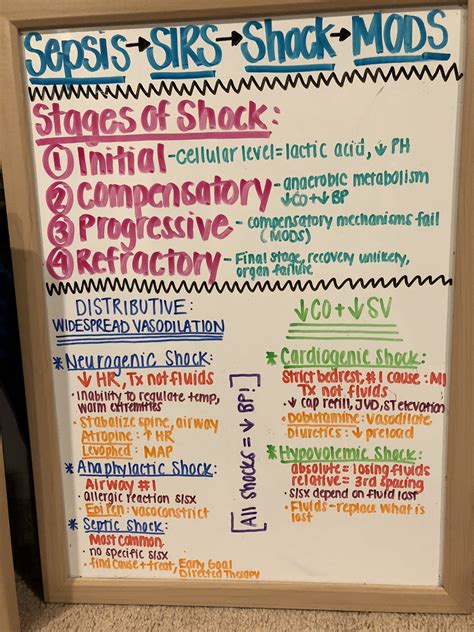 Sepsis → SIRS → Shock → MODS
Stages of Shock:
① Initial - cellular level = lactic acid, ↓ PH
② Compensatory - anaerobic metabolism
↓CO + ↓BP
③ Progressive - compensatory mechanisms fail
(MODS)
④ Refractory - Final stage, recovery unlikely,
organ failure
DISTRIBUTIVE:
WIDESPREAD VASODILATION
* Neurogenic Shock:
↓ HR, Tx not fluids
• Inability to regulate temp,
warm extremities
• Stabalize spine, airway
Atropine: ↑ HR
Levophed: MAP
* Anaphylactic Shock:
Airway #1
• Allergic reaction S/Sx
• Epi Pen: vasoconstrict
* Septic Shock:
Most common
• no specific S/Sx
• find cause + treat, Early Goal
Directed Therapy
[All shocks = ↓ BP!]
↓CO + ↓SV
* Cardiogenic Shock:
Strict bedrest, #1 cause: MI
Tx not fluids
• ↓ cap refill, JVD, ST elevation
• Dobutamine: Vasodilate
Diuretics: ↓ preload
* Hypovolemic Shock:
absolute = losing fluids
relative = 3rd spacing
• S/Sx depend on fluid lost
• Fluids - replace what is
lost